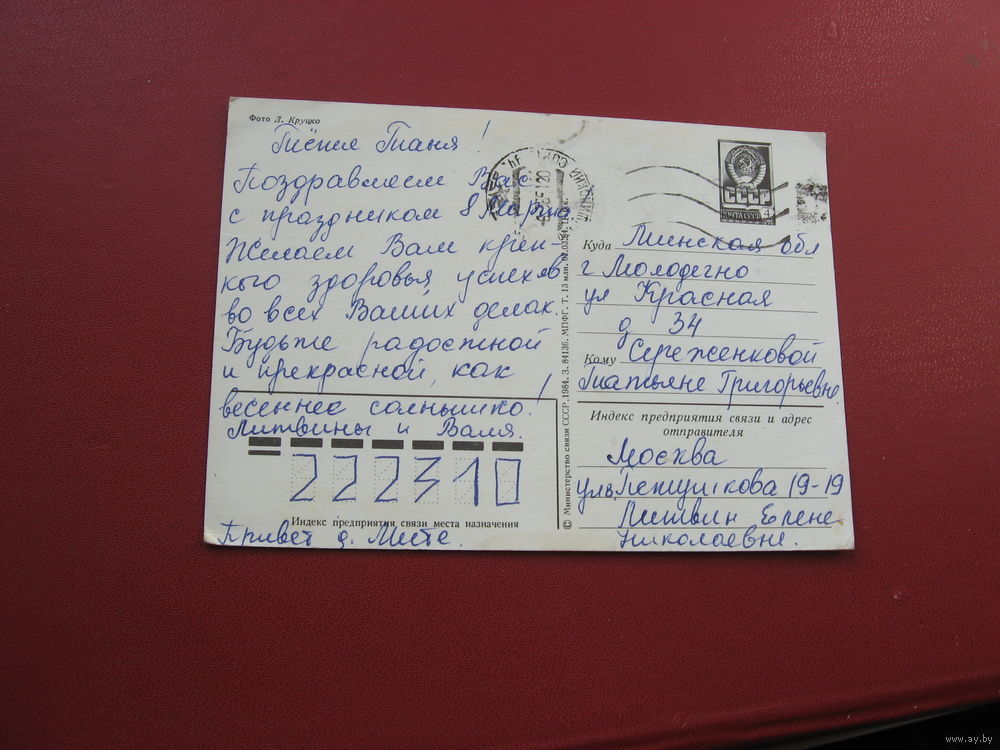 Фото Л. Круцко
Тётя Таня!
Поздравляем Вас
с праздником 8 Марта
Желаем Вам креп-
кого здоровья, успехов
во всех Ваших делах.
Будьте радостной
и прекрасной, как
весеннее солнышко!
Литвины и Валя.
222310
Индекс предприятия связи места назначения
Привет д. Мите.
© Министерство связи СССР. 1984. З. 84136. МПФГ. Т. 13 млн.
СССР
ПОЧТА СССР
4
Куда Минская обл
г Молодечно
ул Красная
д 34
Кому Сереженковой
Татьяне Григорьевне
Индекс предприятия связи и адрес
отправителя
Москва
ул. Петушкова 19-19
Литвин Елене
Николаевне.
www.ay.by